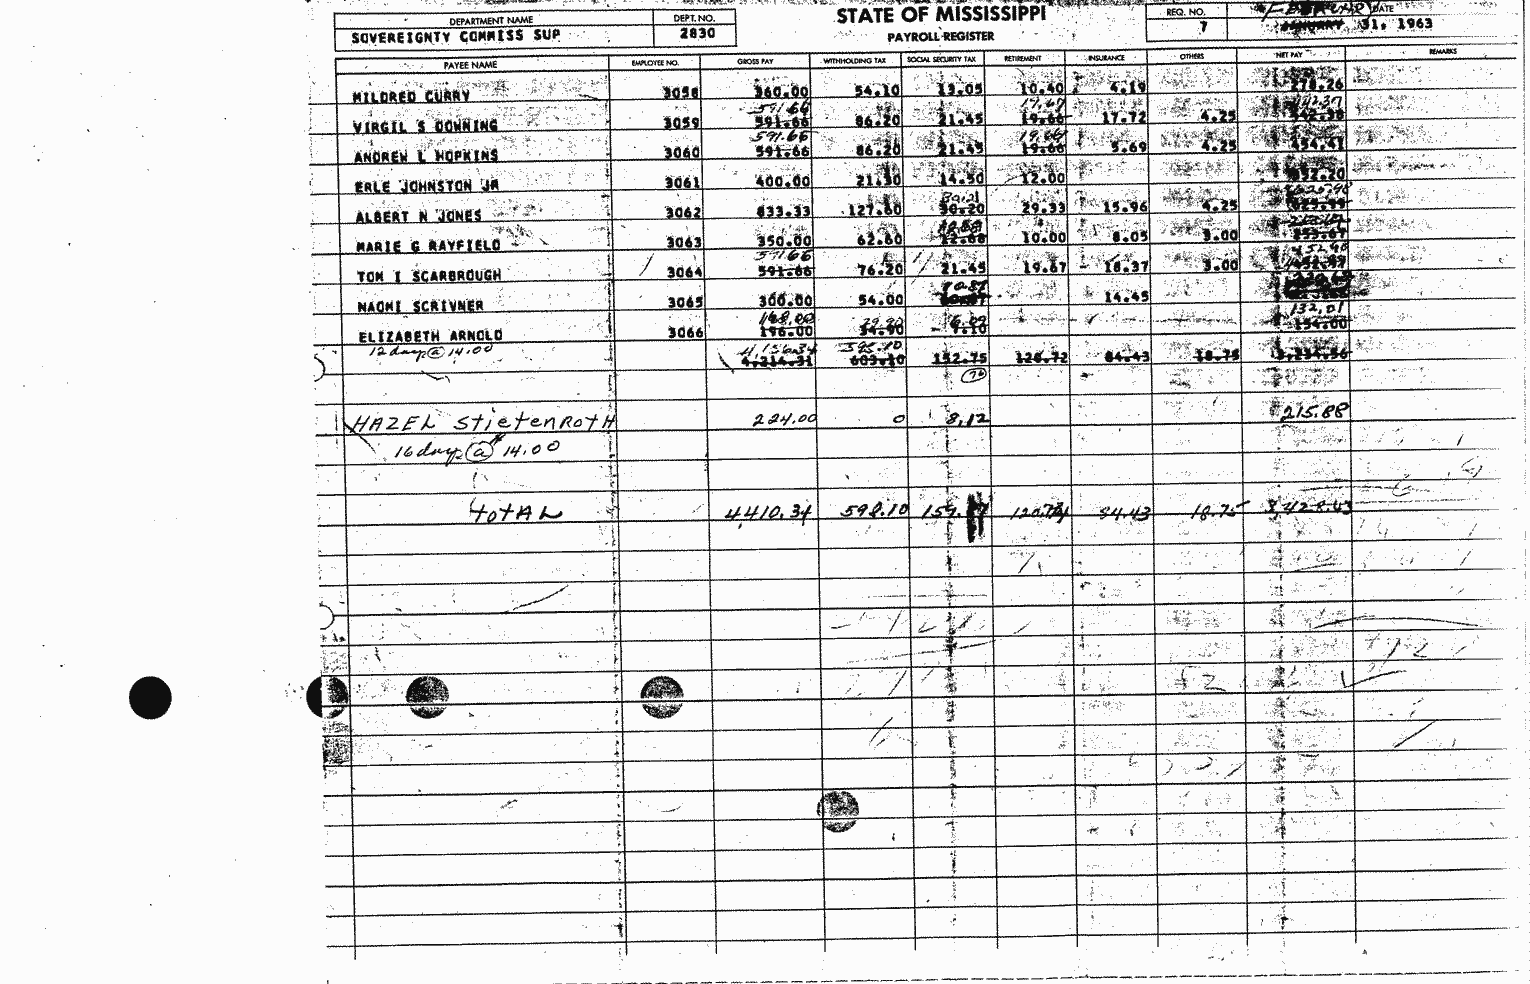 DEPARTMENT NAME DEPT. NO. STATE OF MISSISSIPPI REQ. NO. DATE
SOVEREIGNTY COMMISS SUP 2830 PAYROLL REGISTER 7 31, 1963
PAYEE NAME EMPLOYEE NO. GROSS PAY WITHHOLDING TAX SOCIAL SECURITY TAX RETIREMENT INSURANCE OTHERS NET PAY REMARKS
MILDRED CURRY 3058 360.00 54.10 13.05 10.40 4.19 278.26
591.66 19.67
VIRGIL S DOWNING 3059 591.66 86.20 21.45 19.66 17.72 4.25 442.38
591.66 19.66
ANDREW L HOPKINS 3060 591.66 86.20 21.45 19.66 5.69 4.25 454.41
ERLE JOHNSTON JR 3061 400.00 21.30 14.50 12.00 352.20
ALBERT N JONES 3062 833.33 127.60 30.20 29.33 15.96 4.25
MARIE G RAYFIELD 3063 350.00 62.60 12.68 10.00 8.05 3.00
591.66 452.98
TOM I SCARBROUGH 3064 591.66 76.20 21.45 19.67 18.37 3.00
10.87
NAOMI SCRIVNER 3065 300.00 54.00 14.45
168.00 29.90 6.09 132.01
ELIZABETH ARNOLD 3066 196.00 34.90 7.10 154.00
12 days @ 14.00 4,186.34 598.10
4,214.31 603.10 152.75 120.72 84.43 18.75 3,234.56
HAZEL StietenRotH 224.00 0 8.12 215.88
16 days @ 14.00
TotAL 4,410.34 598.10 159. 84.43 18.75 3,428.43